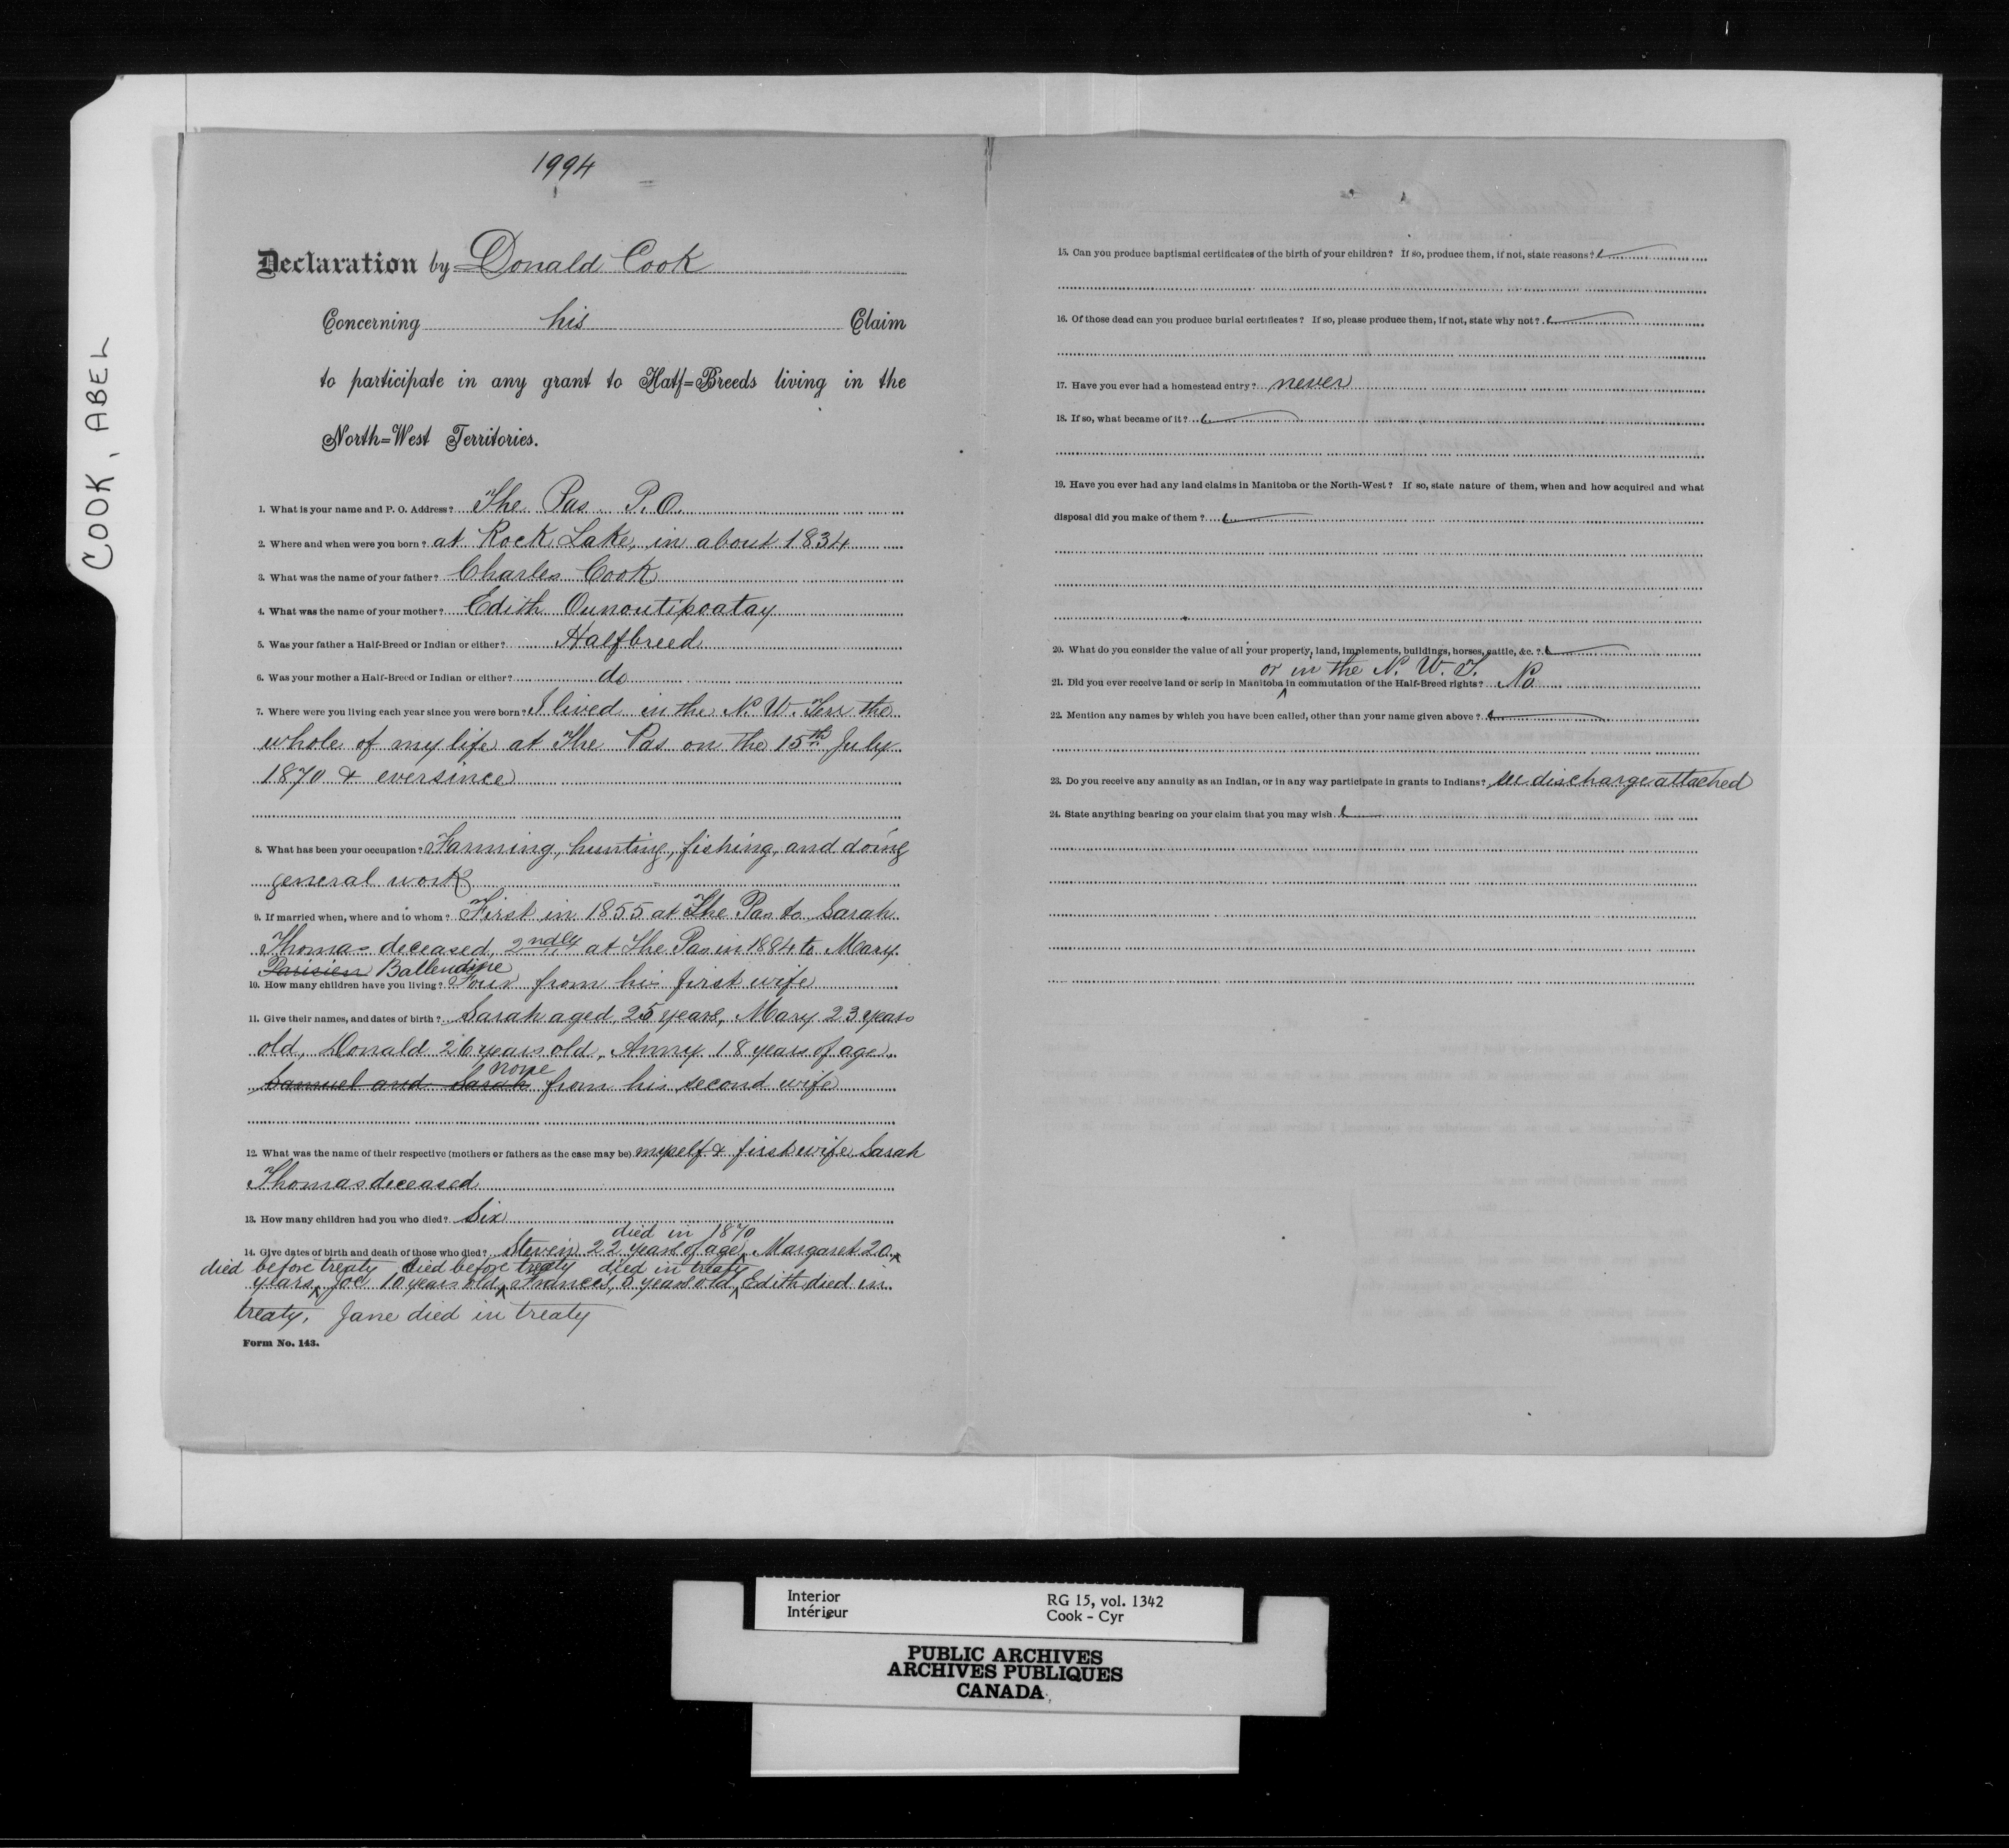 COOK, ABEL
1994
Declaration by Donald Cook
Concerning his Claim
to participate in any grant to Half=Breeds living in the
North=West Territories.
1. What is your name and P. O. Address? The Pas P.O.
2. Where and when were you born? at Rock Lake, in about 1834
3. What was the name of your father? Charles Cook
4. What was the name of your mother? Edith Ounoutipoatay
5. Was your father a Half-Breed or Indian or either? Halfbreed
6. Was your mother a Half-Breed or Indian or either? do
7. Where were you living each year since you were born? I lived in the N. W. Terr the
whole of my life at The Pas on the 15th July
1870 & eversince
8. What has been your occupation? Farming, hunting, fishing, and doing
general work
9. If married when, where and to whom? First in 1855 at The Pas to Sarah
Thomas deceased, 2ndly at The Pas in 1884 to Mary
Parisien Ballendine
10. How many children have you living? Four from his first wife
11. Give their names, and dates of birth? Sarah aged 25 years, Mary 23 years
old, Donald 26 years old, Anny 18 years of age,
none
Samuel and Sarah from his second wife
12. What was the name of their respective (mothers or fathers as the case may be) myself & first wife Sarah
Thomas deceased
13. How many children had you who died? Six
died in 1870
14. Give dates of birth and death of those who died? Steven 22 years of age, Margaret 20
died before treaty died before treaty died in treaty
years, Joe 10 years old, Frances, 5 years old, Edith died in
treaty, Jane died in treaty
Form No. 143.
15. Can you produce baptismal certificates of the birth of your children? If so, produce them, if not, state reasons?
16. Of those dead can you produce burial certificates? If so, please produce them, if not, state why not?
17. Have you ever had a homestead entry? never
18. If so, what became of it?
19. Have you ever had any land claims in Manitoba or the North-West? If so, state nature of them, when and how acquired and what
disposal did you make of them?
20. What do you consider the value of all your property, land, implements, buildings, horses, cattle, &c.?
or in the N. W. T.
21. Did you ever receive land or scrip in Manitoba in commutation of the Half-Breed rights? No
22. Mention any names by which you have been called, other than your name given above?
23. Do you receive any annuity as an Indian, or in any way participate in grants to Indians? see discharge attached
24. State anything bearing on your claim that you may wish
Interior RG 15, vol. 1342
Intérieur Cook - Cyr
PUBLIC ARCHIVES
ARCHIVES PUBLIQUES
CANADA